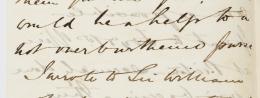 would be a help to a
not overburthened purse
I wrote to Sir William